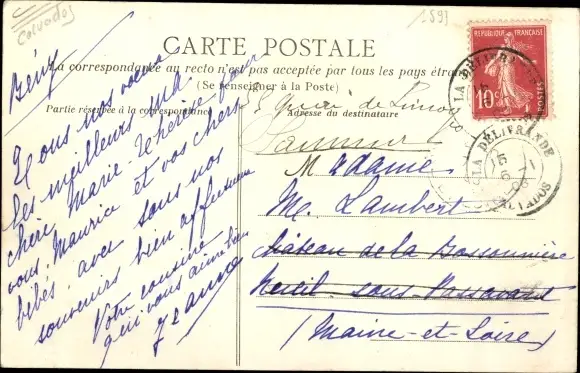 Calvados
1593
CARTE POSTALE
La correspondance au recto n'est pas acceptée par tous les pays étran
(Se renseigner à la Poste)
Partie réservée à la correspondance
Adresse du destinataire
REPUBLIQUE FRANÇAISE
10c
POSTES
LA DÉLIVRANDE
LA DÉLIVRANDE
CALVADOS
Bény
Tous nos vœux
les meilleurs ma
chère Marie-Thérèse pour
vous, Maurice et vos chers
bébés avec tous nos
souvenirs bien affectueux
Votre cousine
qui vous aime bien
Jeanne
quai de Limoges
Saumur
Madame
Me. Lambert
château de la Bossonnière
Neuil-sous-Passavant
(Maine-et-Loire)